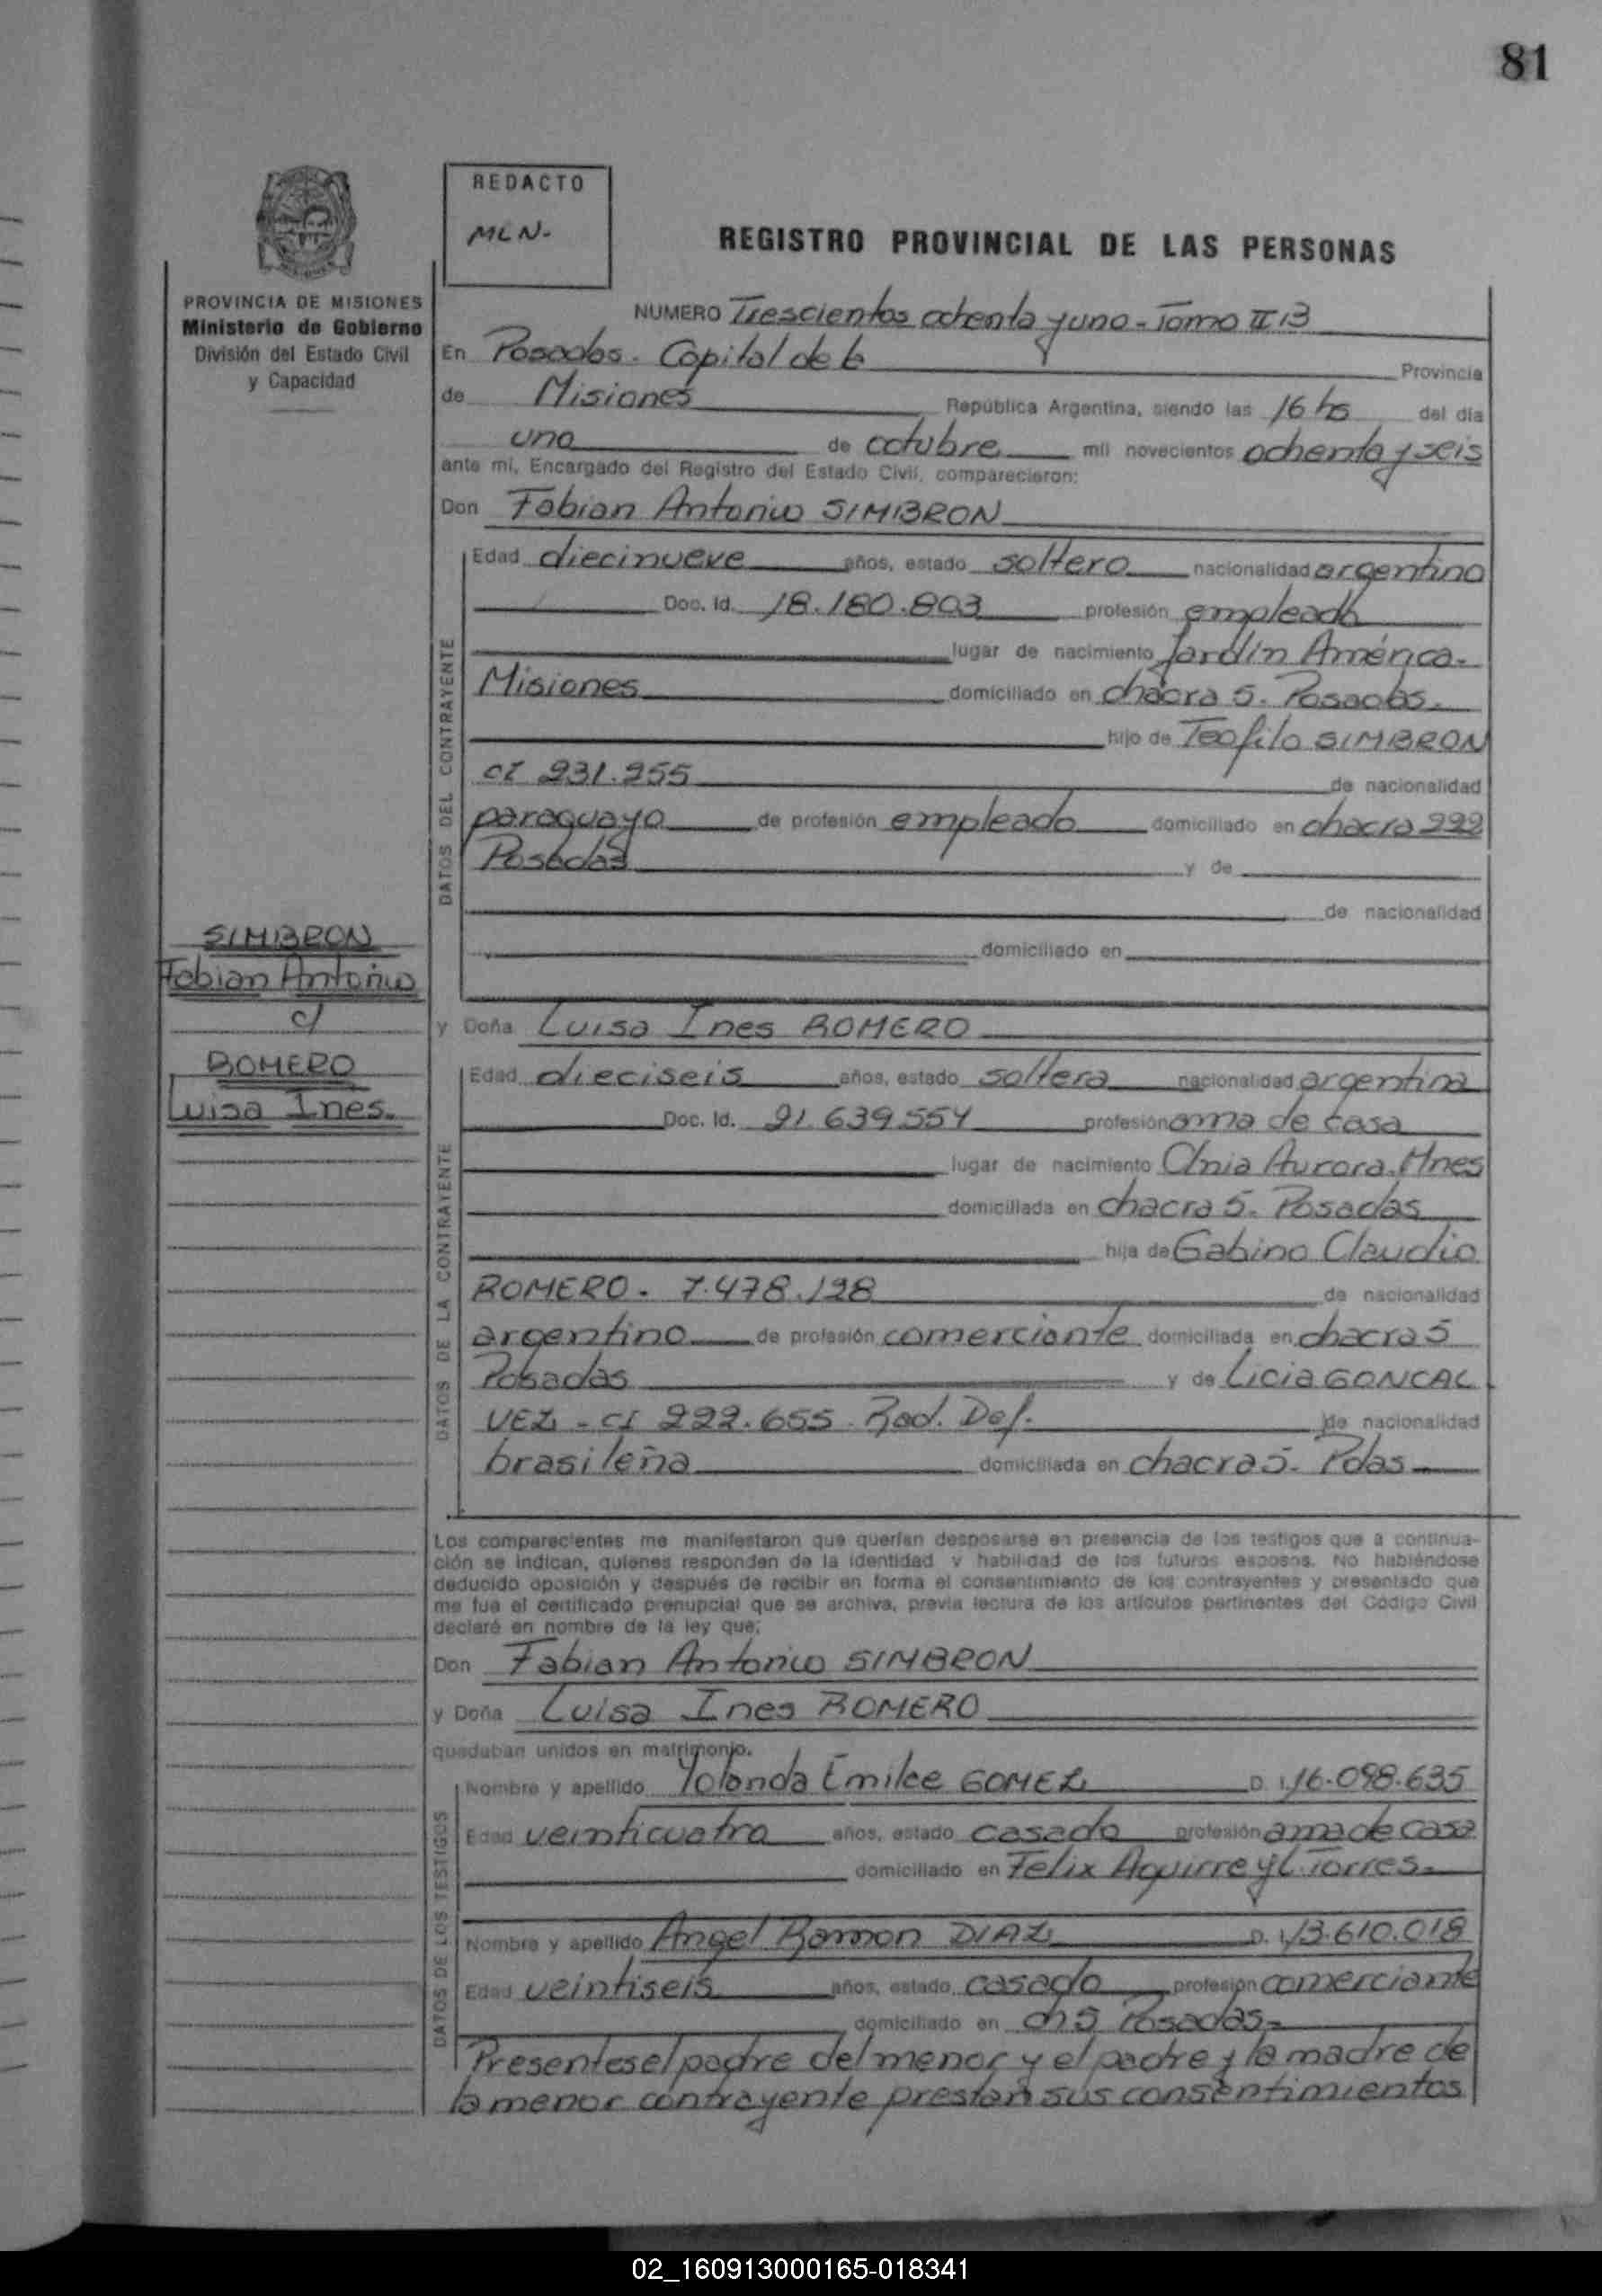 81
REDACTO
MLN.
REGISTRO PROVINCIAL DE LAS PERSONAS
PROVINCIA DE MISIONES
Ministerio de Gobierno
División del Estado Civil
y Capacidad
NUMERO Trescientos ochenta y uno - Tomo II B
En Posadas. Capital de la Provincia
de Misiones República Argentina, siendo las 16 hs del día
uno de octubre mil novecientos ochenta y seis
ante mí, Encargado del Registro del Estado Civil, comparecieron:
Don Fabian Antonio SIMBRON
DATOS DEL CONTRAYENTE
Edad diecinueve años, estado soltero nacionalidad argentino
Doc. Id. 18.180.803 profesión empleado
lugar de nacimiento Jardín América.
Misiones domiciliado en chacra 5. Posadas.
hijo de Teofilo SIMBRON
CI 231.255 de nacionalidad
paraguayo de profesión empleado domiciliado en chacra 222
Posadas y de
de nacionalidad
domiciliado en
SIMBRON
Fabian Antonio
c/
ROMERO
Luisa Ines.
y Doña Luisa Ines ROMERO
DATOS DE LA CONTRAYENTE
Edad dieciseis años, estado soltera nacionalidad argentina
Doc. Id. 21.639.554 profesión ama de casa
lugar de nacimiento Clnia Aurora. Mnes
domiciliada en chacra 5. Posadas
hija de Gabino Claudio
ROMERO. 7.478.128 de nacionalidad
argentino de profesión comerciante domiciliada en chacra 5
Posadas y de Licia GONCAL
VEZ - CI 222.655 Rad. Def. de nacionalidad
brasileña domiciliada en chacra 5. Pdas
Los comparecientes me manifestaron que querían desposarse en presencia de los testigos que a continua-
ción se indican, quienes responden de la identidad y habilidad de los futuros esposos. No habiéndose
deducido oposición y después de recibir en forma el consentimiento de los contrayentes y presentado que
me fue el certificado prenupcial que se archiva, previa lectura de los artículos pertinentes del Código Civil
declaré en nombre de la ley que:
Don Fabian Antonio SIMBRON
y Doña Luisa Ines ROMERO
quedaban unidos en matrimonio.
DATOS DE LOS TESTIGOS
Nombre y apellido Yolanda Emilce GOMEZ D. I. 16.098.635
Edad veinticuatro años, estado casada profesión ama de casa
domiciliado en Felix Aguirre y L. Torres.
Nombre y apellido Angel Ramon DIAZ D. I. 13.610.018
Edad veintiseis años, estado casado profesión comerciante
domiciliado en ch 5 Posadas.
Presentes el padre del menor y el padre y la madre de
la menor contrayente prestan sus consentimientos
02_160913000165-018341